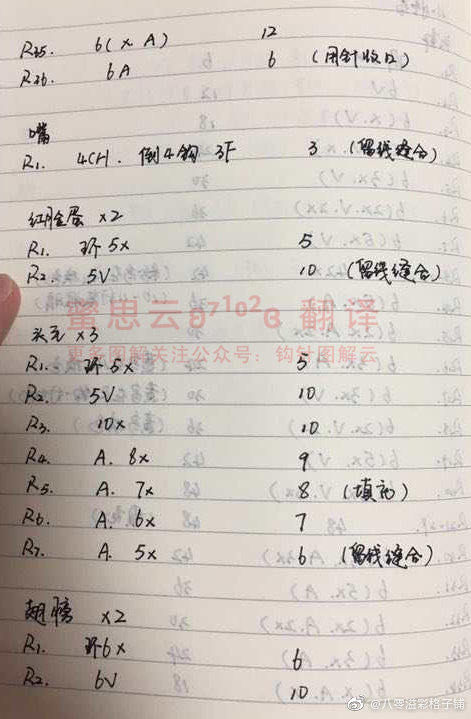 R35. 6(x.A) 12
R36. 6A 6 (用针收口)
嘴
R1. 4CH. 倒4钩 3F 3 (留线缝合)
红脸蛋 x2
R1. 环5x 5
R2. 5V 10 (留线缝合)
蜜思云 翻译
头毛 x3
更多图解关注公众号：钩针图解云
R1. 环5x 5
R2. 5V 10
R3. 10x 10
R4. A. 8x 9
R5. A. 7x 8 (填充)
R6. A. 6x 7
R7. A. 5x 6 (留线缝合)
翅膀 x2
R1. 环6x 6
R2. 6V 10
@八零溢彩格子铺